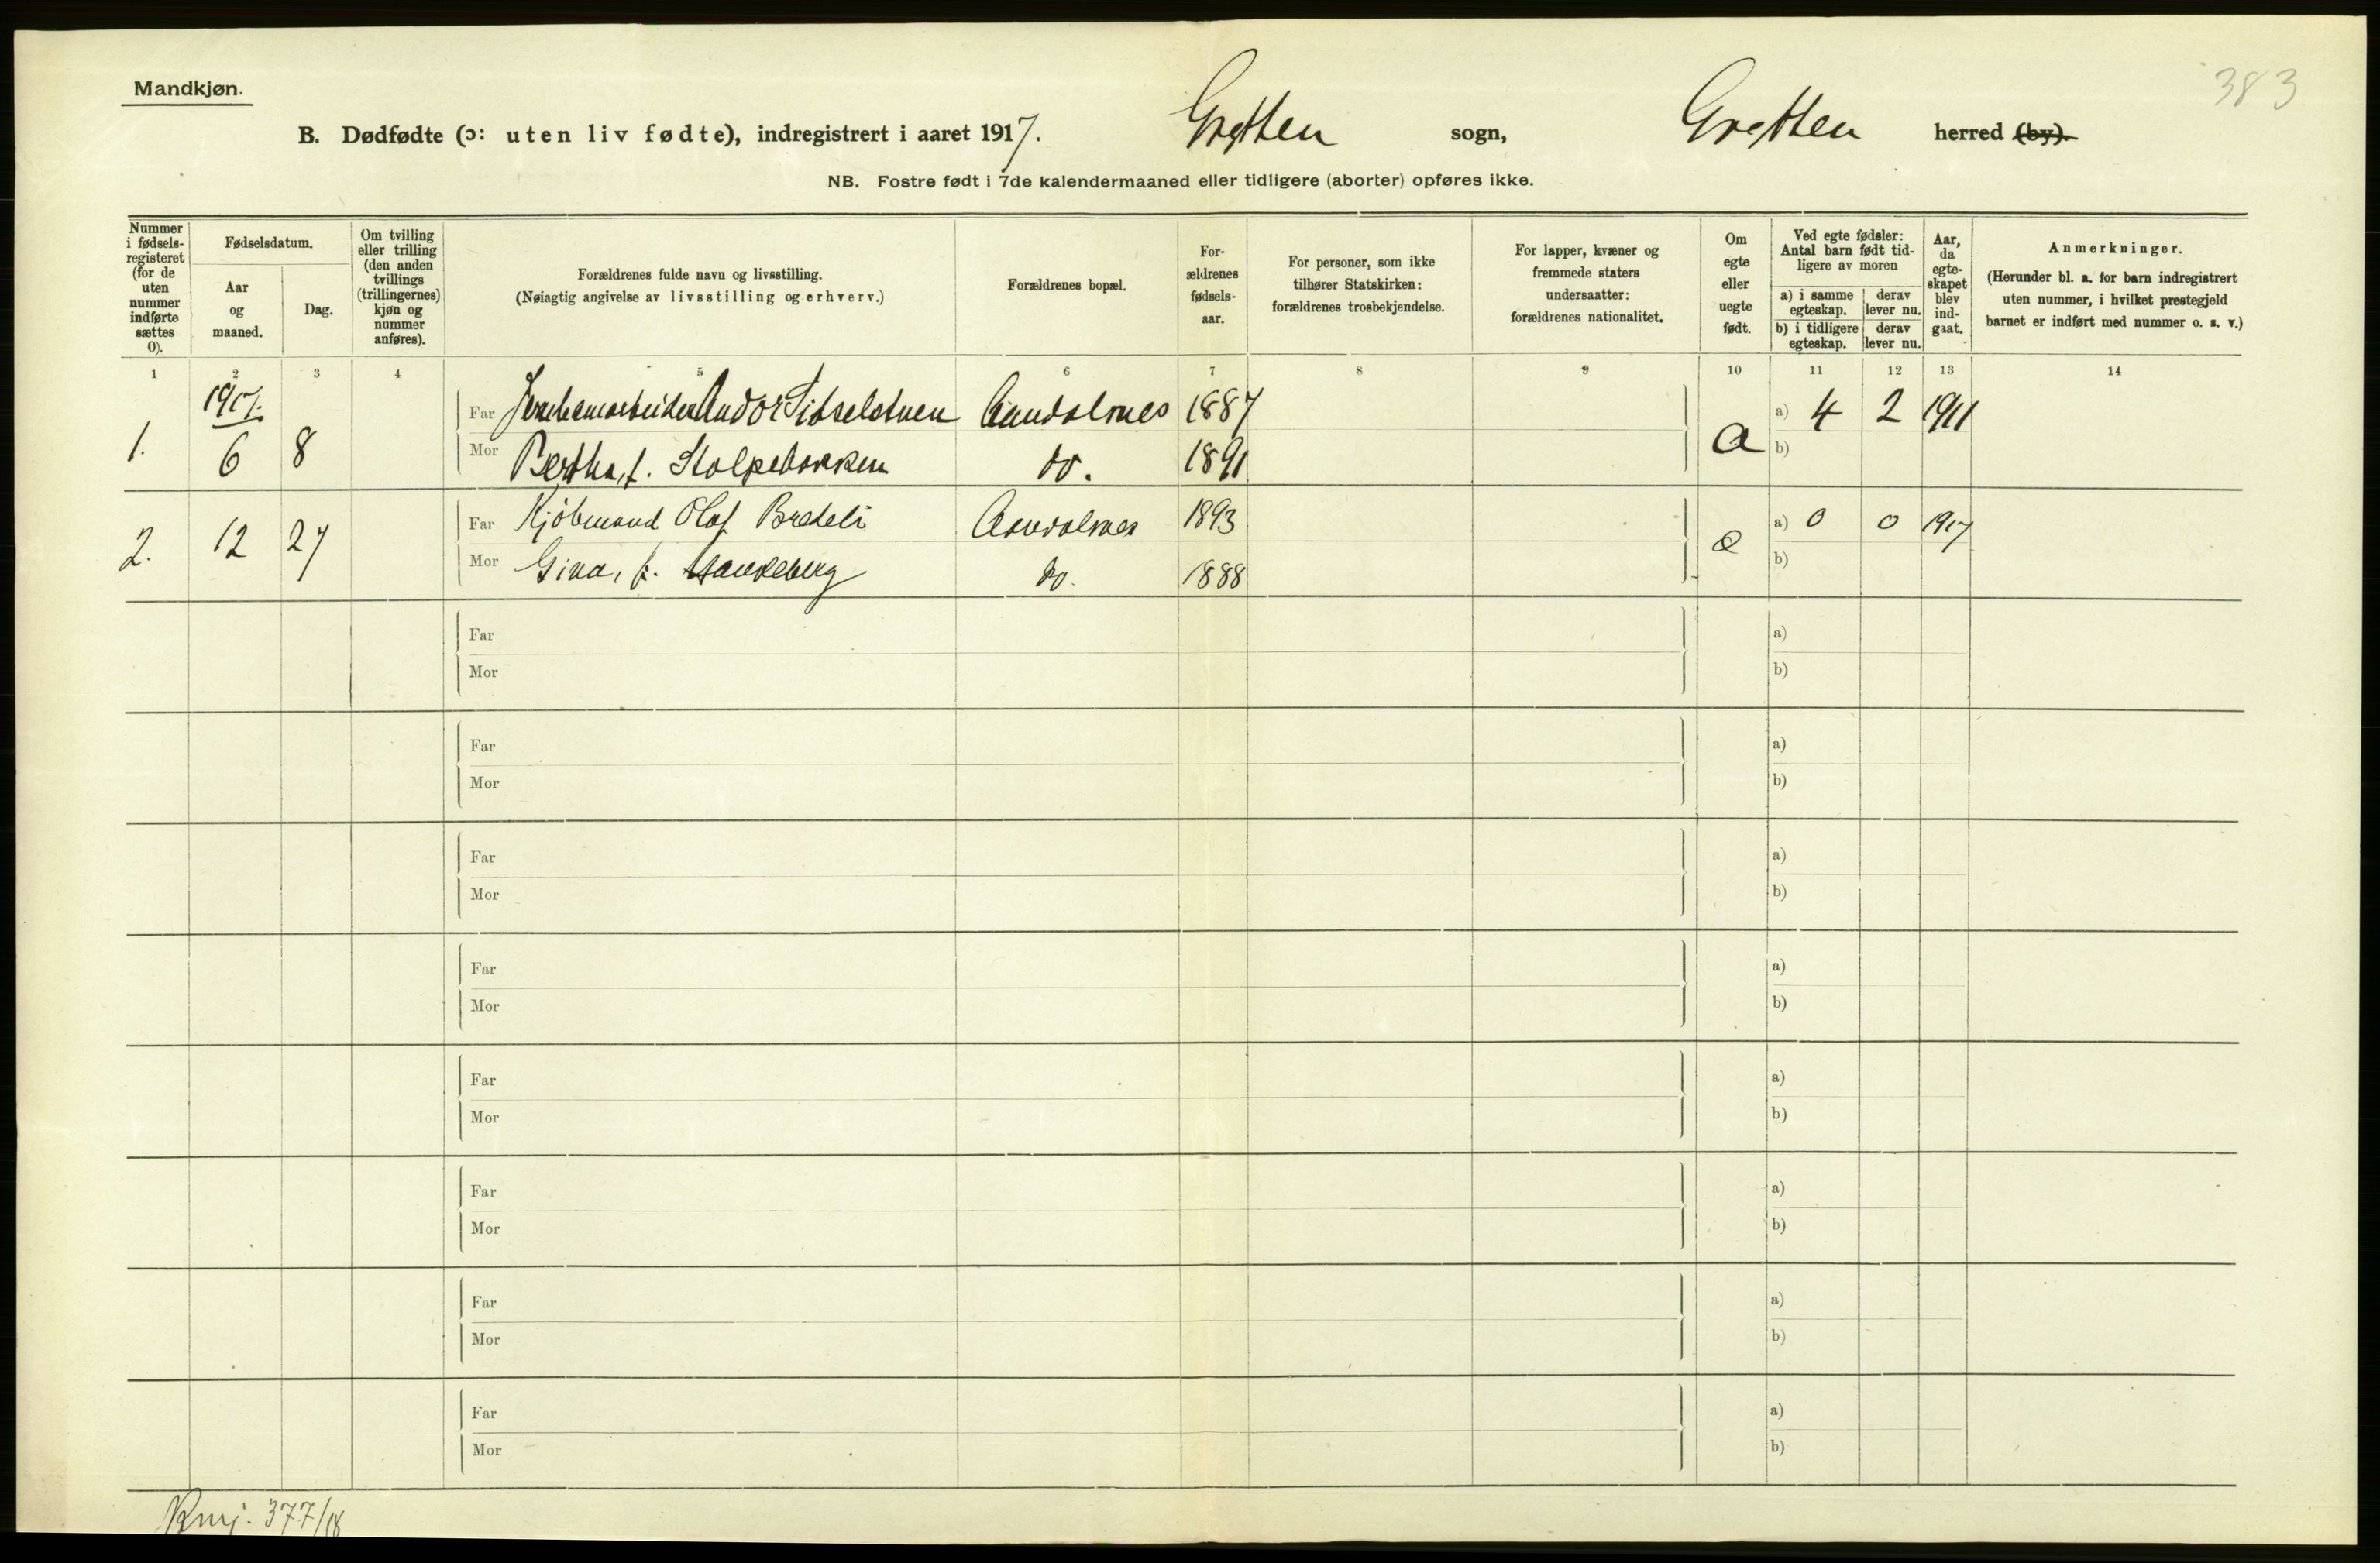 383
Mandkjøn.
B. Dødfødte (ɔ: uten liv fødte), indregistrert i aaret 1917. Grytten sogn, Grytten herred (by).
NB. Fostre født i 7de kalendermaaned eller tidligere (aborter) opføres ikke.
Nummer i fødsels-registeret (for de uten nummer indførte sættes 0).
Fødselsdatum.
Aar og maaned.
Dag.
Om tvilling eller trilling (den anden tvillings (trillingernes) kjøn og nummer anføres).
Forældrenes fulde navn og livsstilling.
(Nøiagtig angivelse av livsstilling og erhverv.)
Forældrenes bopæl.
For-ældrenes fødsels-aar.
For personer, som ikke tilhører Statskirken: forældrenes trosbekjendelse.
For lapper, kvæner og fremmede staters undersaatter: forældrenes nationalitet.
Om egte eller uegte født.
Ved egte fødsler: Antal barn født tid-ligere av moren
a) i samme egteskap. derav lever nu.
b) i tidligere egteskap. derav lever nu.
Aar, da egte-skapet blev ind-gaat.
Anmerkninger.
(Herunder bl. a. for barn indregistrert uten nummer, i hvilket prestegjeld barnet er indført med nummer o. s. v.)
1 2 3 4 5 6 7 8 9 10 11 12 13 14
1917.
1. 6 8 Far Andor 1887 a) 4 2 1911
Mor Bertha, f. Stolpebakken do. 1891 b)
2. 12 27 Far Kjøbmand Olaf Bredeli Aandalsnes 1893 e a) 0 0 1917
Mor Gina, f. do. 1888 b)
Far a)
Mor b)
Far a)
Mor b)
Far a)
Mor b)
Far a)
Mor b)
Far a)
Mor b)
Far a)
Mor b)
Far a)
Mor b)
Far a)
Mor b)
377/18